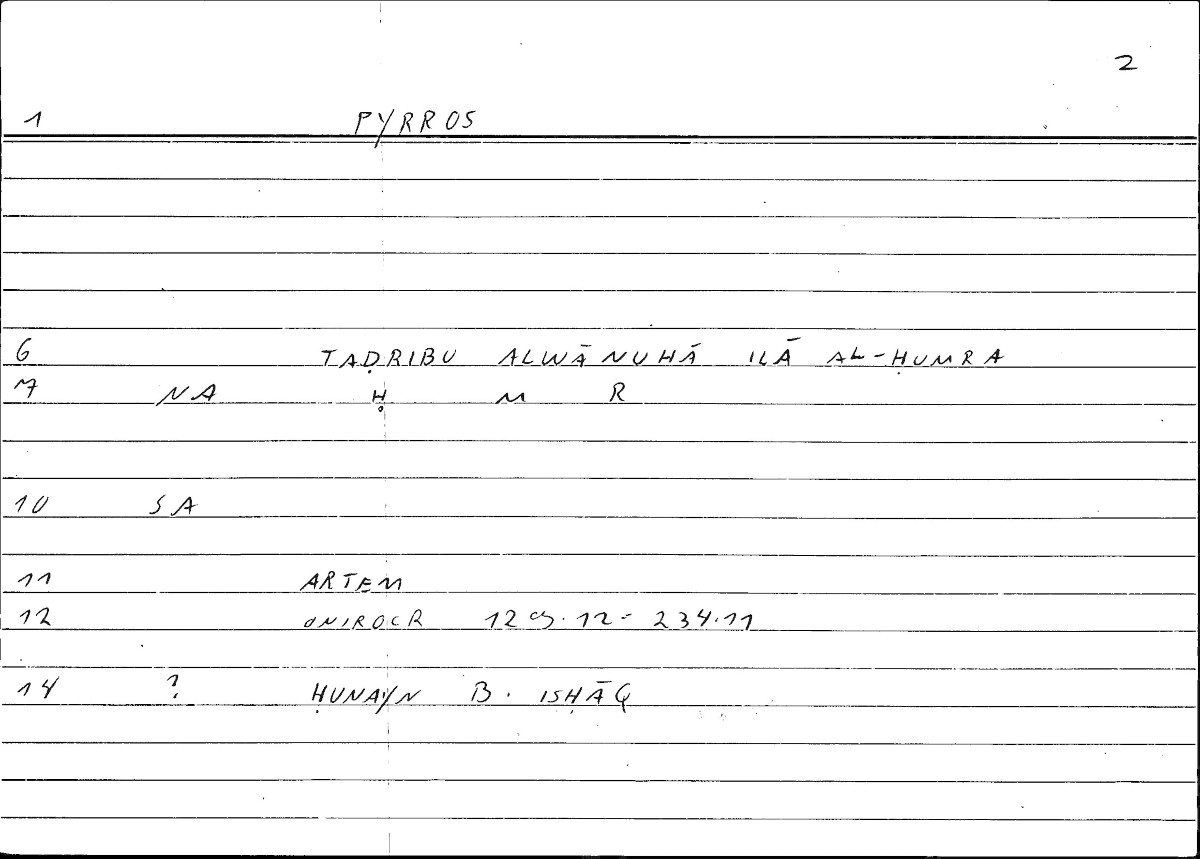 2
1 PYRROS
6 TAḌRIBU ALWĀNUHĀ ILĀ AL-ḤUMRA
7 NA Ḥ M R
10 SA
11 ARTEM
12 ONIROCR 129.12 = 234.11
14 ? ḤUNAYN B. ISḤĀQ